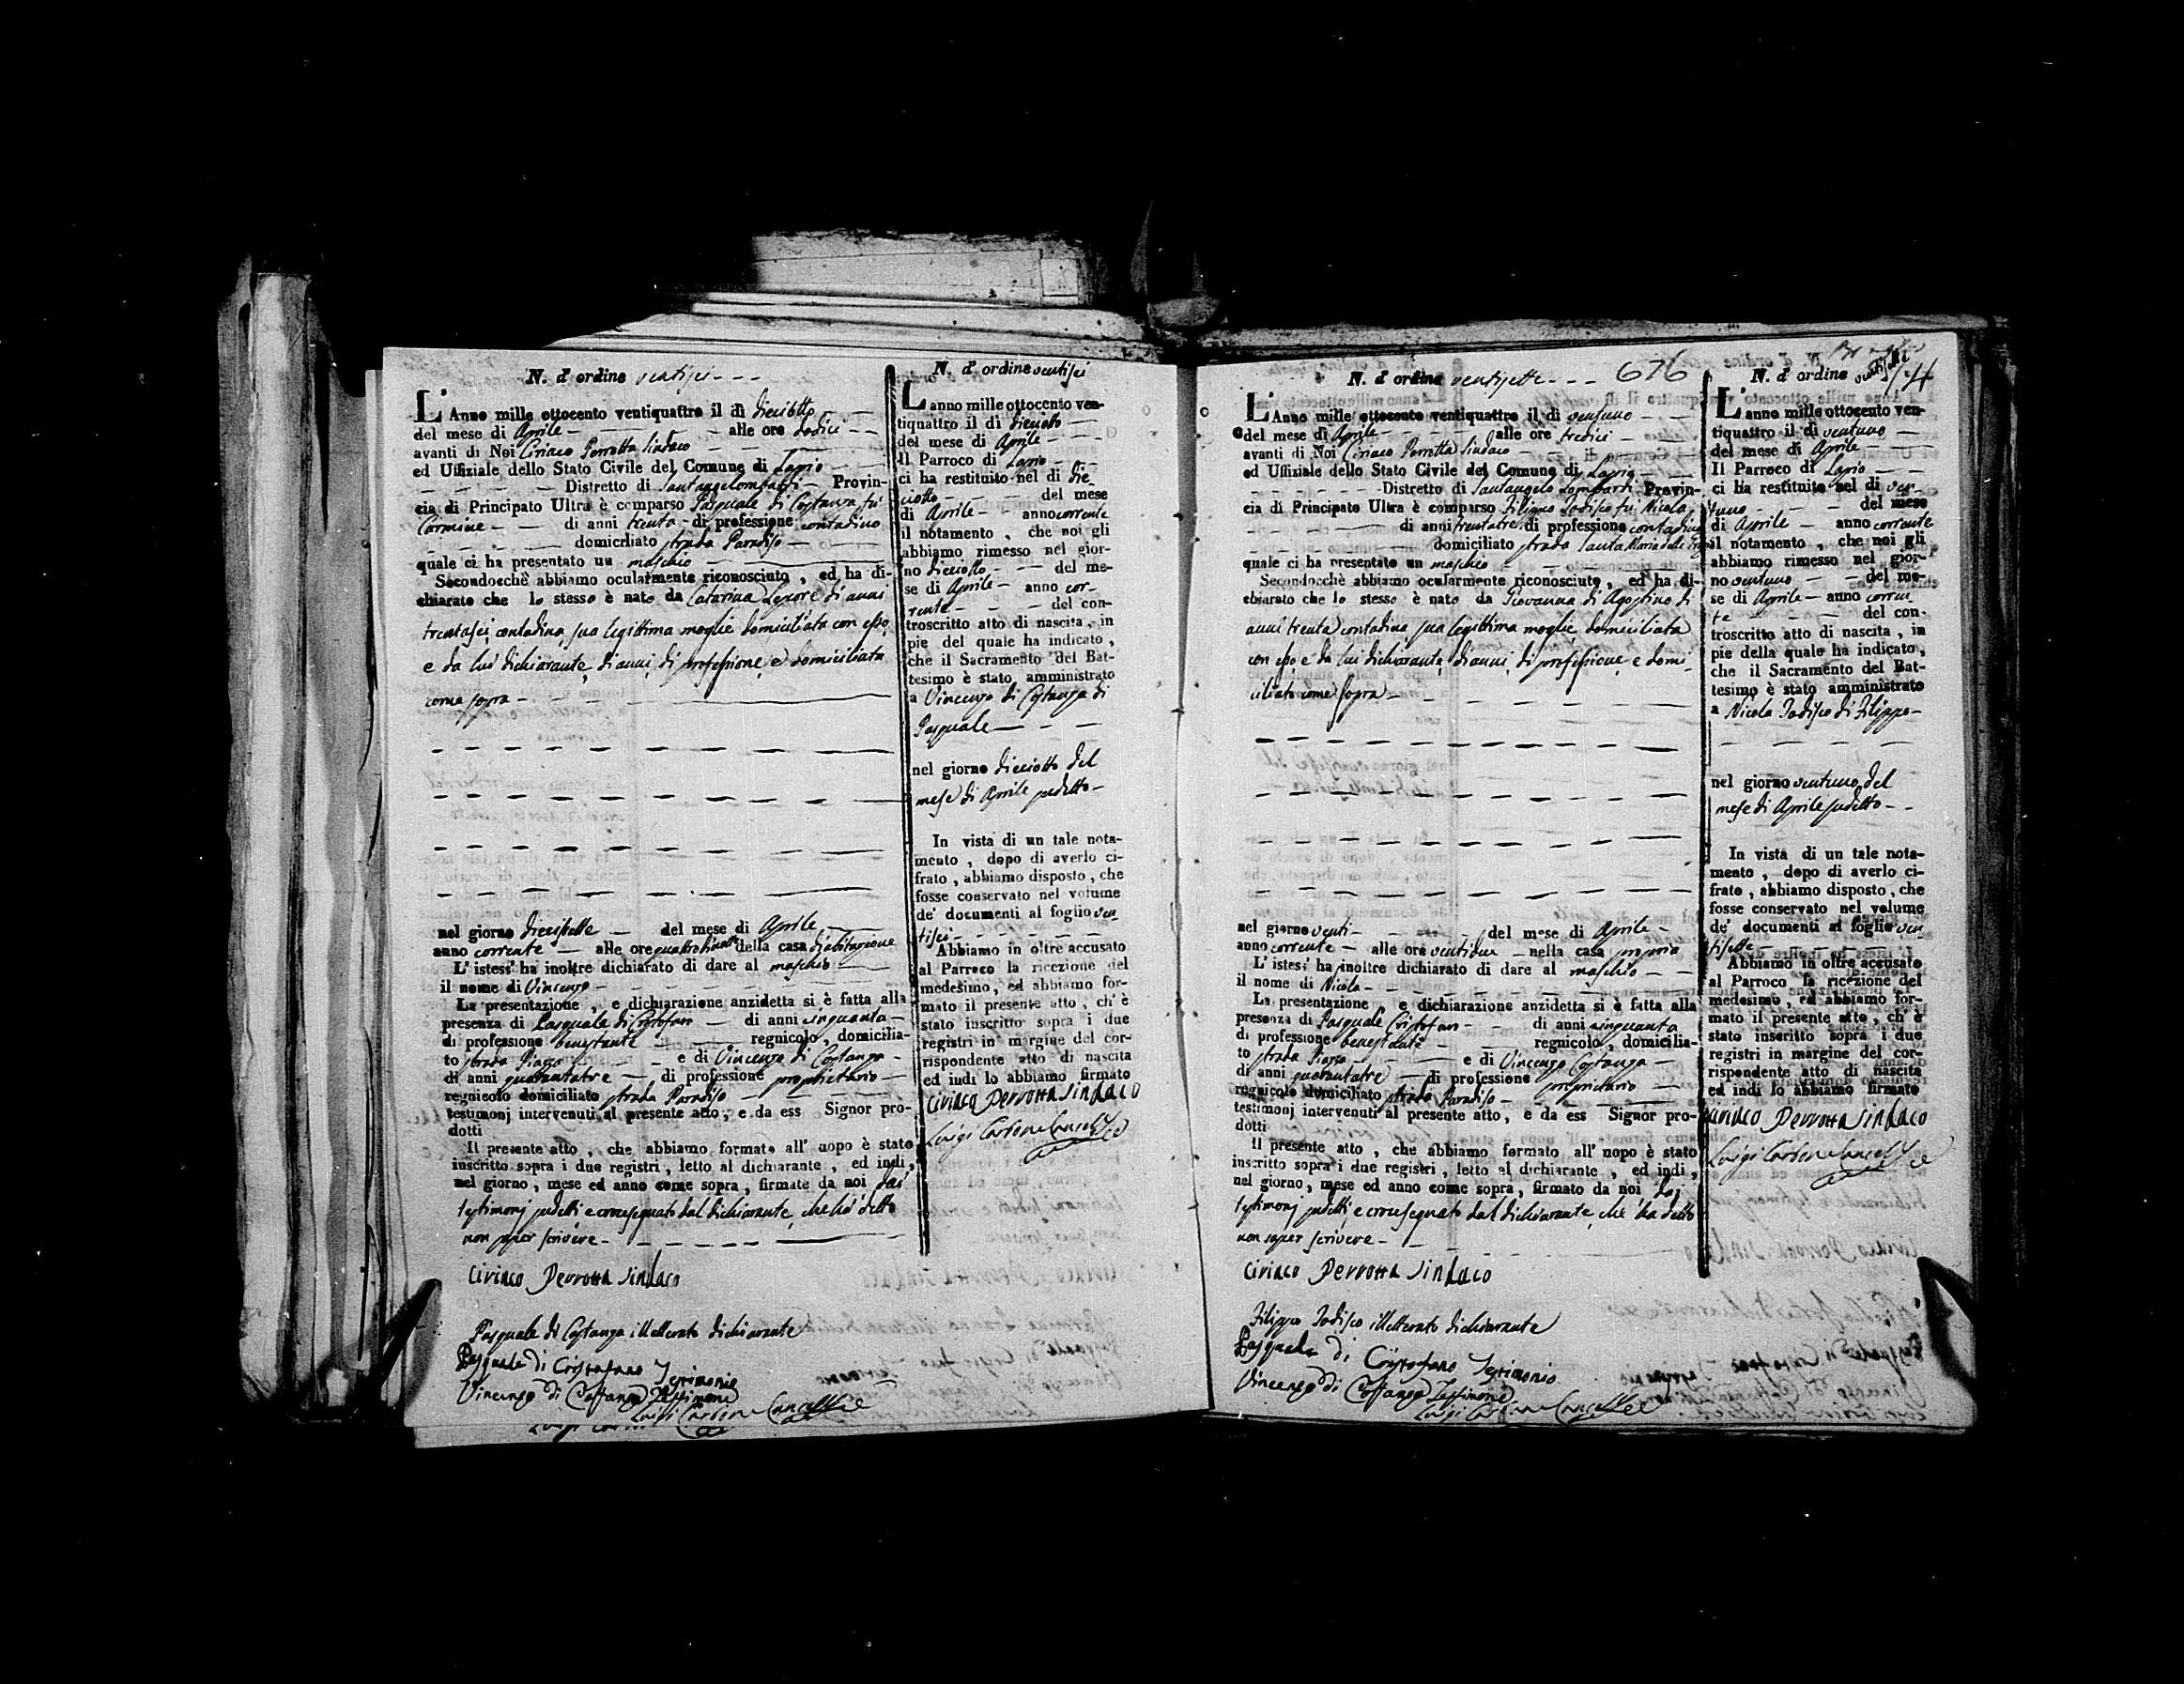 N. d' ordine ventisei
L' Anno mille ottocento ventiquattro il dì dieciotto
del mese di Aprile alle ore dodici
avanti di Noi Ciriaco Perrotta Sindaco
ed Uffiziale dello Stato Civile del Comune di Lapio
Distretto di Santangelombardi Provin-
cia di Principato Ultra è comparso Pasquale di Costanza fù
Carmine di anni trenta di professione contadino
domiciliato strada Paradiso
quale ci ha presentato un maschio
Secondocchè abbiamo ocularmente riconosciuto , ed ha di-
chiarato che lo stesso è nato da Catarina Lepore di anni
trentasei contadina sua legittima moglie domiciliata con esso,
e da lui dichiarante, di anni, di professione, e domiciliata
come sopra
nel giorno diecisette del mese di Aprile
anno corrente alle ore della casa d'abitazione
L' istess' ha inoltre dichiarato di dare al maschio
il nome di Vincenzo
La presentazione , e dichiarazione anzidetta si è fatta alla
presenza di Pasquale di Cristofaro di anni cinquanta
di professione benestante regnicolo , domicilia-
to strada Piazza e di Vincenzo di Costanza
di anni quarantatre di professione proprietario
regnicolo domiciliato strada Paradiso
testimonj intervenuti al presente atto , e da ess Signor pro-
dotti
Il presente atto , che abbiamo formato all' uopo è stato
inscritto sopra i due registri , letto al dichiarante , ed indi ,
nel giorno , mese ed anno come sopra , firmato da noi dai
testimonj sudetti, e crocesegnato dal dichiarante, che hà detto
non saper scrivere
Ciriaco Perrotta Sindaco
Pasquale di Costanza illetterato dichiarante
Pasquale di Cristofaro Testimonio
Vincenzo di Costanza Testimone
Luigi Carbone Cancelliere
N. d' ordine ventisei
L' anno mille ottocento ven-
tiquattro il di dieciotto
del mese di Aprile
Il Parroco di Lapio
ci ha restituito nel di die-
ciotto del mese
di Aprile anno corrente
il notamento , che noi gli
abbiamo rimesso nel gior-
no dieciotto del me-
se di Aprile anno cor-
rente del con-
troscritto atto di nascita , in
pie del quale ha indicato ,
che il Sacramento del Bat-
tesimo è stato amministrato
a Vincenzo di Costanza di
Pasquale
nel giorno dieciotto del
mese di Aprile sudetto
In vista di un tale nota-
mento , dopo di averlo ci-
frato , abbiamo disposto , che
fosse conservato nel volume
de' documenti al foglio ven-
tisei
Abbiamo in oltre accusato
al Parroco la ricezione del
medesimo , ed abbiamo for-
mato il presente atto , ch' è
stato inscritto sopra i due
registri in margine del cor-
rispondente atto di nascita
ed indi lo abbiamo firmato
Ciriaco Perrotta Sindaco
Luigi Carbone Cancelliere
N. d' ordine ventisette 676
L' Anno mille ottocento ventiquattro il dì ventuno
del mese di Aprile alle ore tredici
avanti di Noi Ciriaco Perrotta Sindaco
ed Uffiziale dello Stato Civile del Comune di Lapio
Distretto di Santangelo Lombardi Provin-
cia di Principato Ultra è comparso Filippo Jodisco fù Nicola
di anni trentatre di professione contadino
domiciliato strada Santa Maria delle
quale ci ha presentato un maschio
Secondocchè abbiamo ocularmente riconosciuto , ed ha di-
chiarato che lo stesso è nato da Giovanna di Agostino di
anni trenta contadina sua legittima moglie, domiciliata
con esso e da lui dichiarante, di anni, di professione, e domi-
ciliato come sopra
nel giorno venti del mese di Aprile
anno corrente alle ore ventidue nella casa propria
L' istess' ha inoltre dichiarato di dare al maschio
il nome di Nicola
La presentazione , e dichiarazione anzidetta si è fatta alla
presenza di Pasquale Cristofaro di anni cinquanta
di professione benestante regnicolo , domicilia-
to strada Piazza e di Vincenzo Costanza
di anni quarantatre di professione proprietario
regnicolo domiciliato strada Paradiso
testimonj intervenuti al presente atto , e da ess Signor pro-
dotti
Il presente atto , che abbiamo formato all' uopo è stato
inscritto sopra i due registri , letto al dichiarante , ed indi ,
nel giorno , mese ed anno come sopra , firmato da noi dai
testimonj sudetti, e crocesegnato dal dichiarante, che ha detto
non saper scrivere
Ciriaco Perrotta Sindaco
Filippo Jodisco illetterato dichiarante
Pasquale di Cristofano Testimonio
Vincenzo di Costanza Testimone
Luigi Carbone Cancelliere
N. d' ordine ventisette 14
L' anno mille ottocento ven-
tiquattro il di ventuno
del mese di Aprile
Il Parroco di Lapio
ci ha restituito nel di ven-
tuno del mese
di Aprile anno corrente
il notamento , che noi gli
abbiamo rimesso nel gior-
no ventuno del me-
se di Aprile anno corren-
te del con-
troscritto atto di nascita , in
pie della quale ha indicato ,
che il Sacramento del Bat-
tesimo è stato amministrato
a Nicola Jodisco di Filippo
nel giorno ventuno del
mese di Aprile sudetto
In vista di un tale nota-
mento , dopo di averlo ci-
frato , abbiamo disposto , che
fosse conservato nel volume
de' documenti al foglio ven-
tisette
Abbiamo in oltre accusato
al Parroco la ricezione del
medesimo , ed abbiamo for-
mato il presente atto , ch' è
stato inscritto sopra i due
registri in margine del cor-
rispondente atto di nascita
ed indi lo abbiamo firmato
Ciriaco Perrotta Sindaco
Luigi Carbone Cancelliere